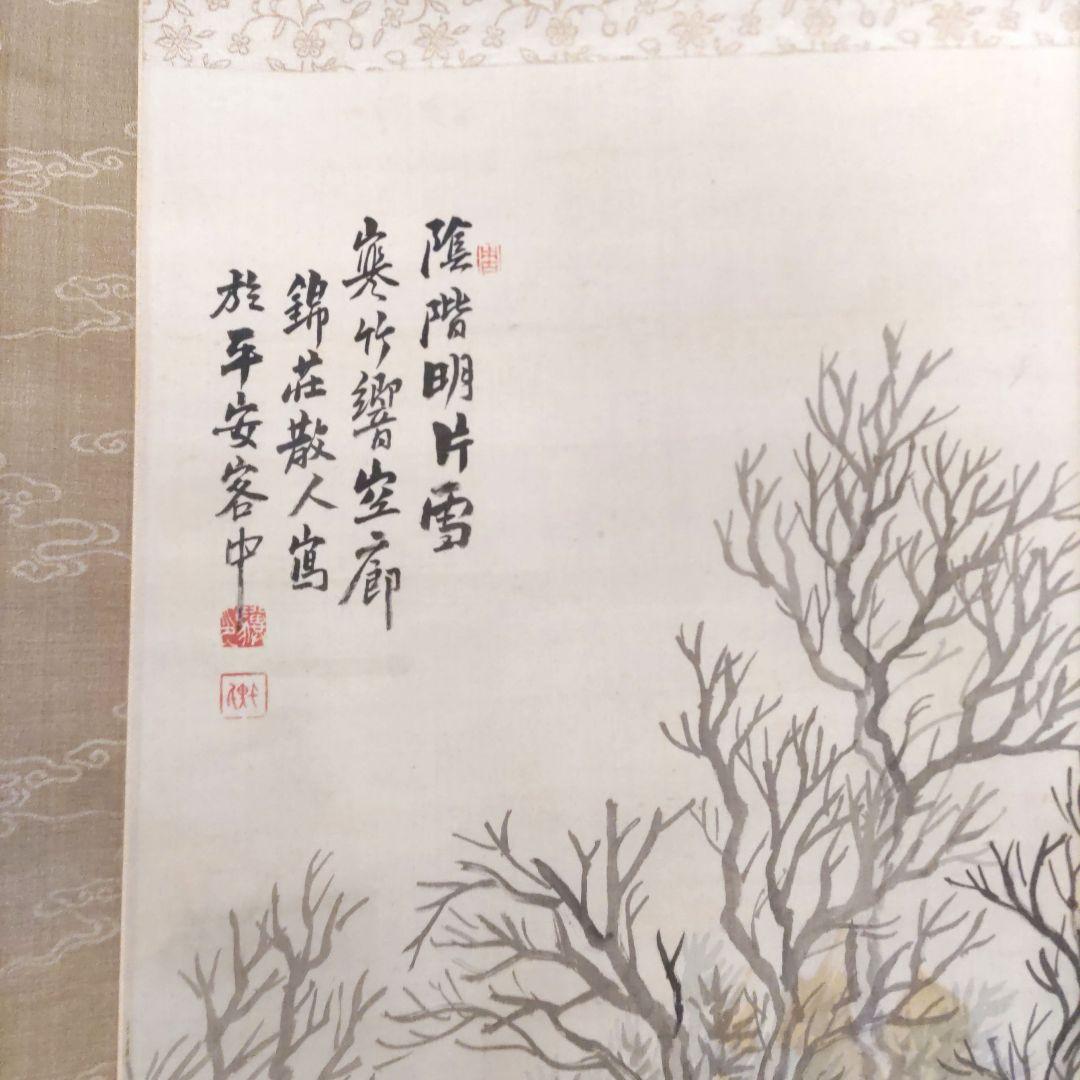 陰階明片雪
寒竹響空廊
錦荘散人寫
於平安客中